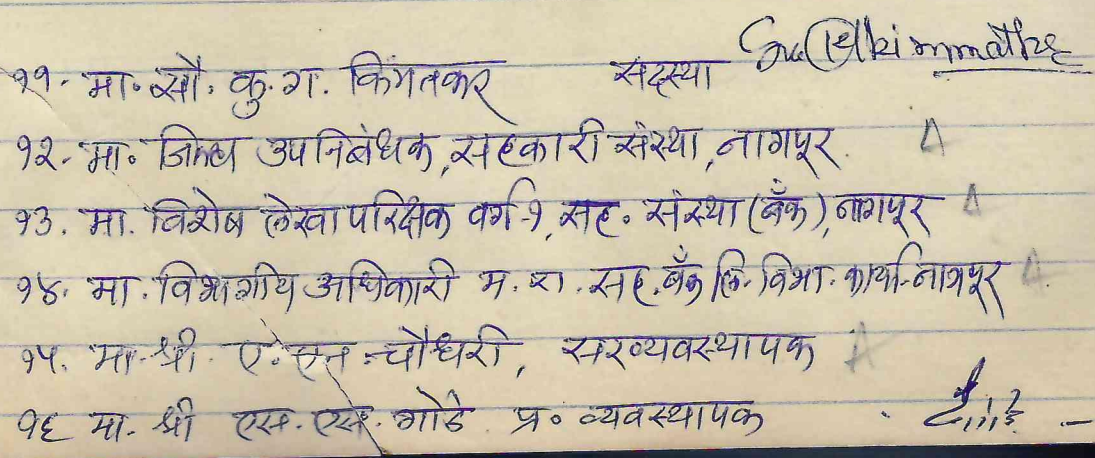 ११. मा. सौ. कु. ग. किंमतकर सदस्या
१२. मा. जिल्हा उपनिबंधक, सहकारी संस्था, नागपूर. A
१३. मा. विशेष लेखा परिक्षक वर्ग-१, सह. संस्था (बँक), नागपूर A
१४. मा. विभागीय अधिकारी म. रा. सह. बँक लि. विभा. कार्या. नागपूर A
१५. मा. श्री. ए. एन. चौधरी, सरव्यवस्थापक A
१६ मा. श्री एस. एस. गोडे प्र. व्यवस्थापक